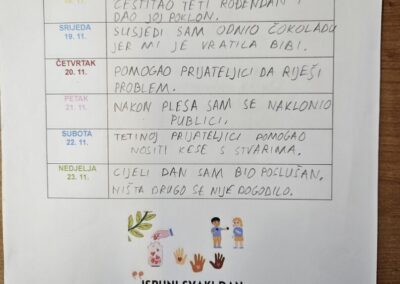 18. 11.
ČESTITAO TETI ROĐENDAN I
DAO JOJ POKLON.
SRIJEDA
19. 11.
SUSJEDI SAM ODNIO ČOKOLADU
JER MI JE VRATILA BIBI.
ČETVRTAK
20. 11.
POMOGAO PRIJATELJICI DA RIJEŠI
PROBLEM.
PETAK
21. 11.
NAKON PLESA SAM SE NAKLONIO
PUBLICI.
SUBOTA
22. 11.
TETINOJ PRIJATELJICI POMOGAO
NOSITI KESE S STVARIMA.
NEDJELJA
23. 11.
CIJELI DAN SAM BIO POSLUŠAN.
NIŠTA DRUGO SE NIJE DOGODILO.
ISPUNI SVAKI DAN